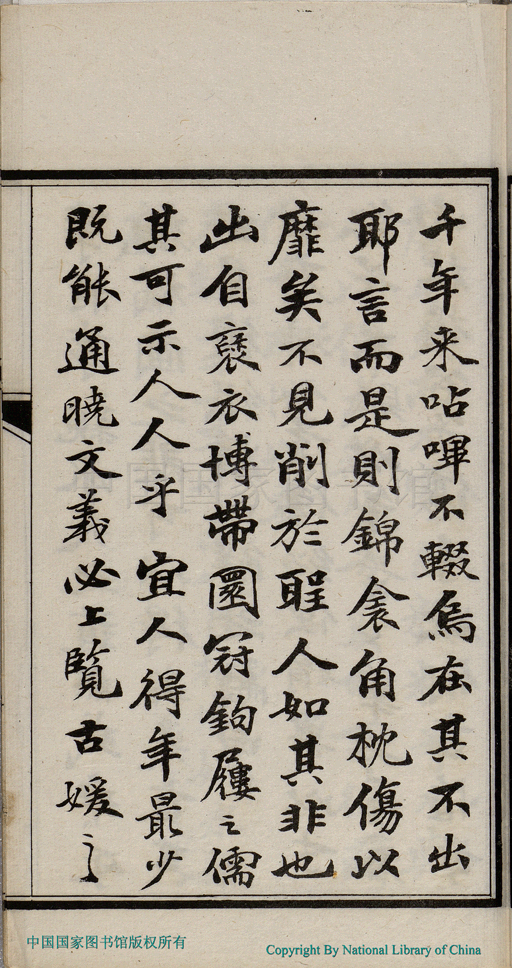 千年来呫嗶不輟烏在其不出
耶言而是則錦衾角枕傷以
靡矣不見削於聖人如其非也
出自褒衣博帶圜冠鉤屨之儒
其可示人人乎宜人得年最少
既能通曉文義必上覽古媛之
中国国家图书馆
中国国家图书馆版权所有
Copyright By National Library of China